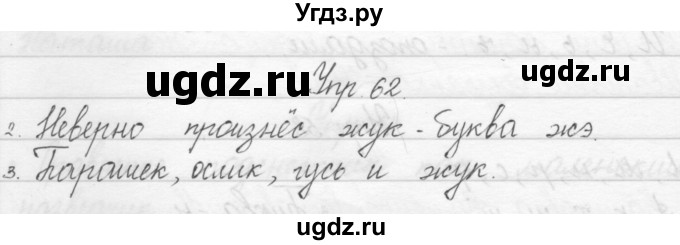 Угдз.ру
ugdz.ru ugdz.ru
Упр 62.
2. Неверно произнёс жук - буква жэ.
3. Барашек, ослик, гусь и жук.
ugdz.ru ugdz.ru
ugdz.ru